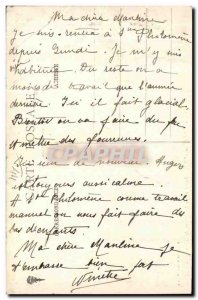 Ma chère Mauline
Je suis rentrée à Ste Philomène
depuis lundi. Je m'y suis
réhabituée. Du reste on a
moins de travail que l'année
dernière. Ici il fait glacial.
Bientôt on va faire du feu
et mettre des fourrures.
Suis rien de nouveau. Angèle
est toujours aussi
A Ste Philomène comme travail
manuel on nous fait faire des
bas d'enfants.
Ma chère Mauline je
t'embrasse bien fort
Ginette
CARTE POSTALE